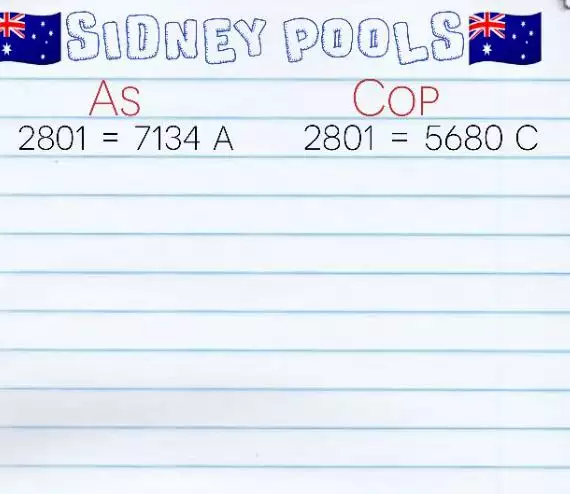 SIDNEY POOLS
As Cop
2801 = 7134 A 2801 = 5680 C